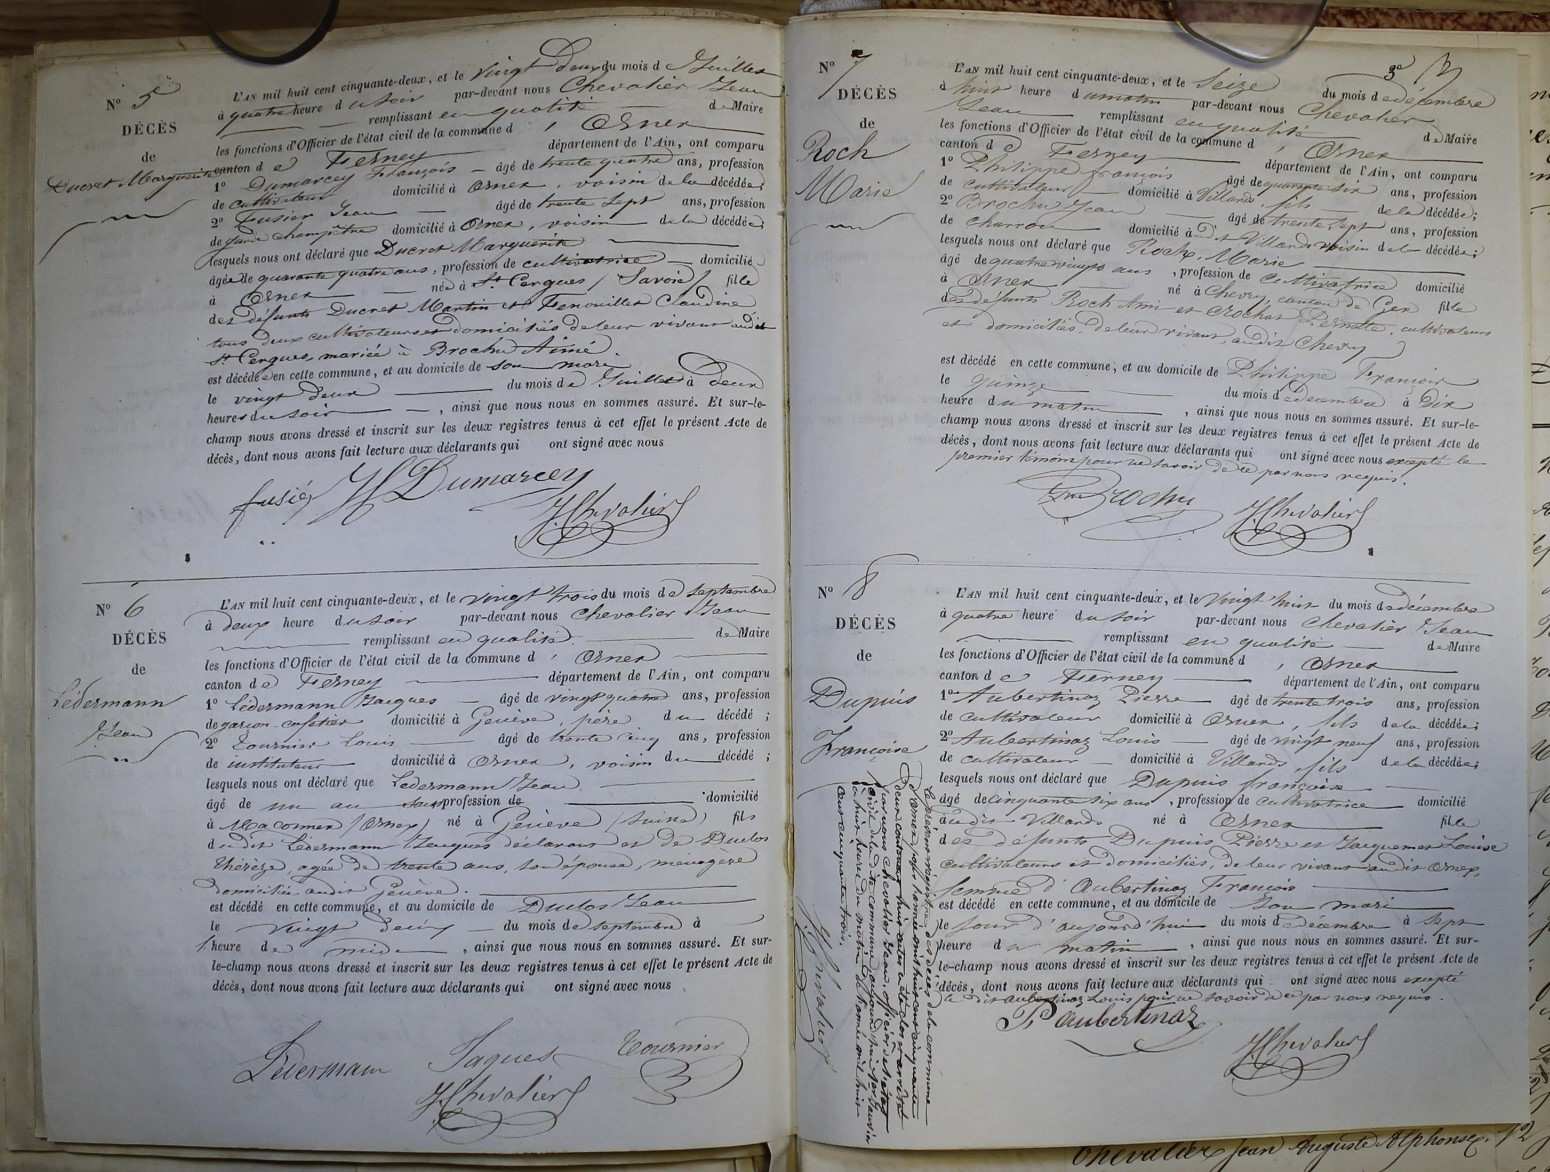 N° 5
DÉCÈS
de
Ducret Marguerite
L'AN mil huit cent cinquante-deux, et le vingt deux du mois d e Juillet
à quatre heure d u soir par-devant nous Chevalier Jean
remplissant en qualité de Maire
les fonctions d'Officier de l'état civil de la commune d ' Ornex
canton d e Ferney département de l'Ain, ont comparu
1° Dumarcey François âgé de trente quatre ans, profession
de cultivateur domicilié à Ornex, voisin de la décédée;
2° Fusier Jean âgé de trente sept ans, profession
de garde champêtre domicilié à Ornex, voisin de la décédée;
lesquels nous ont déclaré que Ducret Marguerite
âgée de quarante quatre ans, profession de cultivatrice domiciliée
à Ornex née à St Cergues (Savoie) fille
des défunts Ducret Martin et Fenouillet Claudine
tous deux cultivateurs et domiciliés de leur vivant audit
St Cergues, mariée à Brochu Aimé.
est décédée en cette commune, et au domicile de son mari
le vingt deux du mois d e Juillet à deux
heures du soir, ainsi que nous nous en sommes assuré. Et sur-le-
champ nous avons dressé et inscrit sur les deux registres tenus à cet effet le présent Acte de
décès, dont nous avons fait lecture aux déclarants qui ont signé avec nous
fusier Dumarcey
J. Chevalier
N° 6
DÉCÈS
de
Lédermann
Jean
L'AN mil huit cent cinquante-deux, et le vingt trois du mois d e septembre
à deux heure d u soir par-devant nous Chevalier Jean
remplissant en qualité de Maire
les fonctions d'Officier de l'état civil de la commune d ' Ornex
canton d e Ferney département de l'Ain, ont comparu
1° Lédermann Jacques âgé de vingt quatre ans, profession
de garçon cafetier domicilié à Genève, père du décédé;
2° Tournier Louis âgé de trente cinq ans, profession
de instituteur domicilié à Ornex, voisin du décédé;
lesquels nous ont déclaré que Lédermann Jean
âgé de un an profession de domicilié
à Maconnex (Ornex) né à Genève (Suisse) fils
dudit Lédermann Jacques déclarant et de Duclos
Thérèse, agée de trente ans, son épouse, menagère
domiciliés audit Genève.
est décédé en cette commune, et au domicile de Duclos Jean
le vingt deux du mois d e septembre à
l'heure de midi, ainsi que nous nous en sommes assuré. Et sur-
le-champ nous avons dressé et inscrit sur les deux registres tenus à cet effet le présent Acte de
décès, dont nous avons fait lecture aux déclarants qui ont signé avec nous
Ledermann Jaques Tournier
J. Chevalier
N° 7
DÉCÈS
de
Roch
Marie
L'AN mil huit cent cinquante-deux, et le seize du mois d e décembre
à huit heure d u matin par-devant nous Chevalier
Jean remplissant en qualité de Maire
les fonctions d'Officier de l'état civil de la commune d ' Ornex
canton d e Ferney département de l'Ain, ont comparu
1° Philippe François âgé de quarante six ans, profession
de cultivateur domicilié à Villard, fils de la décédée;
2° Brochu Jean âgé de trente sept ans, profession
de charron domicilié à dt Villard voisin de la décédée;
lesquels nous ont déclaré que Roch, Marie
âgé de quatre vingts ans, profession de cultivatrice domicilié
à Ornex né à Chevry, canton de Gex fille
des défunts Roch Ami et Crochat Pernette, cultivateurs
et domiciliés de leur vivant, audit Chevry
est décédé en cette commune, et au domicile de Philippe François
le quinze du mois d e décembre à Dix
heure d u matin, ainsi que nous nous en sommes assuré. Et sur-le-
champ nous avons dressé et inscrit sur les deux registres tenus à cet effet le présent Acte de
décès, dont nous avons fait lecture aux déclarants qui ont signé avec nous excepté le
premier témoin pour ne savoir de ce par nous requis.
Brochu J. Chevalier
N° 8
DÉCÈS
de
Dupuis
Françoise
L'AN mil huit cent cinquante-deux, et le vingt huit du mois d e décembre
à quatre heure d u soir par-devant nous Chevalier Jean
remplissant en qualité de Maire
les fonctions d'Officier de l'état civil de la commune d ' Ornex
canton d e Ferney département de l'Ain, ont comparu
1° Aubertinaz Pierre âgé de trente trois ans, profession
de cultivateur domicilié à Ornex, fils de la décédée;
2° Aubertinaz Louis âgé de vingt neuf ans, profession
de cultivateur domicilié à Villard, fils de la décédée;
lesquels nous ont déclaré que Dupuis françoise
âgé de cinquante six ans, profession de cultivatrice domicilié
audit Villard né à Ornex fille
des défunts Dupuis Pierre et Jacquemet Louise
cultivateurs et domiciliés, de leur vivant audit Ornex,
femme d'Aubertinaz François
est décédé en cette commune, et au domicile de son mari
le jour d'aujourd'hui du mois d e décembre à sept
heure d u matin, ainsi que nous nous en sommes assuré. Et sur-
le-champ nous avons dressé et inscrit sur les deux registres tenus à cet effet le présent Acte de
décès, dont nous avons fait lecture aux déclarants qui ont signé avec nous excepté
le dit aubertinaz Louis pour ne savoir de ce par nous requis.
P aubertinaz
J. Chevalier
Le présent registre des décès de la commune
d'Ornex, pour l'année mil huit cent cinquante
deux contenant huit actes a été clos et arrêté
par nous Chevalier Jean, officier de l'état
civil de la dite commune aujourd'hui premier Janvier
à huit heures du matin de l'année mil huit
cent cinquante trois.
J. Chevalier
Chevalier Jean Auguste Alphonse. 12